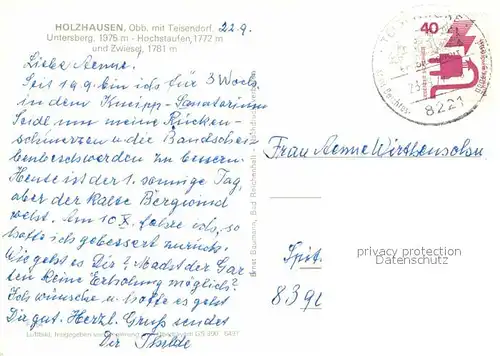 HOLZHAUSEN, Obb. mit Teisendorf
Untersberg, 1975 m - Hochstaufen, 1772 m
und Zwiesel, 1781 m
22.9.
Liebe Aenne.
Seit 19.9. bin ich für 3 Woch.
in dem Kneipp-Sanatorium
Seidl um meine Rücken-
schmerzen u. die Bandschei-
benbeschwerden zu bessern.
Heute ist der 1. sonnige Tag,
aber der kalte Bergwind
weht. Am 10 X. fahre ich, so
hoffe ich gebessert zurück.
Wie geht es Dir? Macht der Gar
ten keine Erholung möglich?
Ich wünsche u. hoffe es geht
Dir gut. Herzl. Gruß sendet
Dir Thilde
Ernst Baumann, Bad Reichenhall
40
8221
Frau Aenne Wirthensohn
privacy protection
Datenschutz
Spit
839